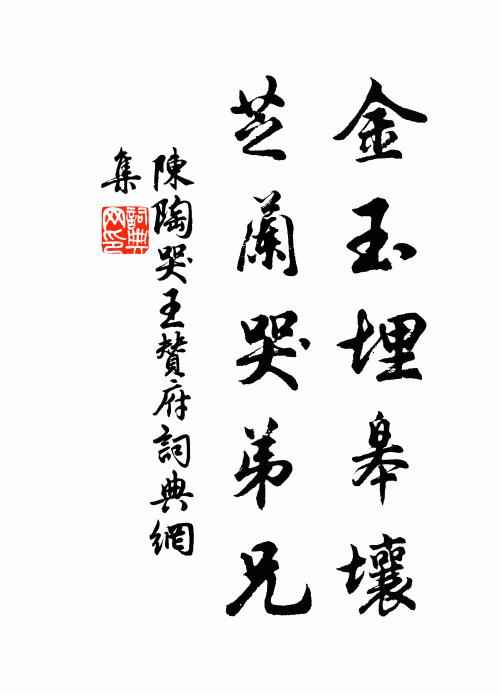 金玉埋皋壤
芝蘭哭弟兄
陳陶哭王贊府詞典網
集
詞典
网印